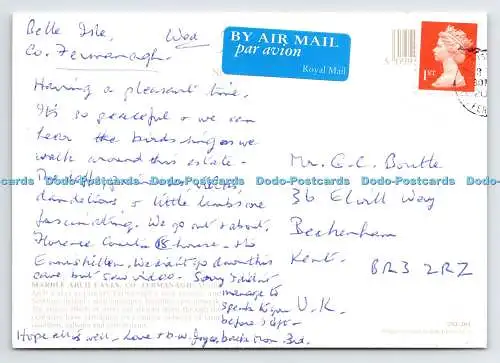 Belle Isle, Wed
Co. Fermanagh.
BY AIR MAIL
par avion
Royal Mail
1ST
Having a pleasant time.
It's so peaceful & we can
hear the birds singing as we
walk around this estate.
dandelions & little lambs are
fascinating. We go out & about,
Florence Court house & to
Enniskillen. We didn't go down this
cave but saw video. Sorry I didn't
manage to
speak to you
before I left.
Hope all is well. Love
back on 3rd.
Mr. G.C. Boutle
36 Elwill Way
Beckenham
Kent. BR3 2RZ
U.K.
MARBLE ARCH CAVES, CO. FERMANAGH
Dodo-Postcards Dodo-Postcards Dodo-Postcards Dodo-Postcards Dodo-Postcards Dodo-Postcards